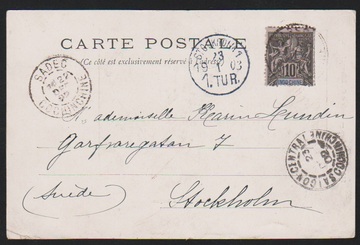 CARTE POSTALE
Ce côté est exclusivement réservé
STOCKHOLM
23
1 03
1. TUR.
10
INDO-CHINE
SADEC
COCHINCHINE
SAIGON CENTRAL
COCHINCHINE
Mademoiselle Karin Lundin
Garfvaregatan 7
(Suède)
Stockholm